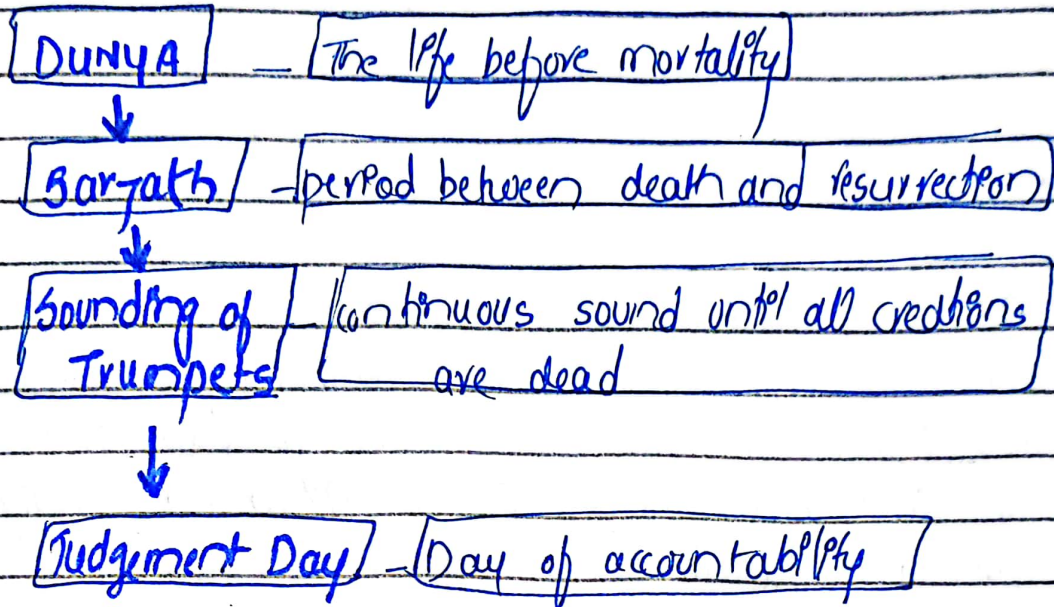 DUNYA - The life before mortality
Barzakh - period between death and resurrection
Sounding of - continuous sound until all creations
Trumpets are dead
Judgement Day - Day of accountability